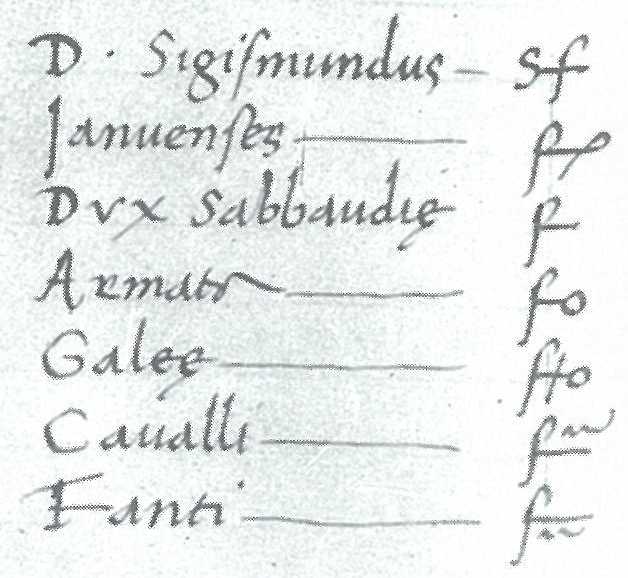 D · Sigiſmundus — Sf
Januenſes
Dvx Sabbaudię f
Armatr fo
Galeę ffo
Caualli
Fanti